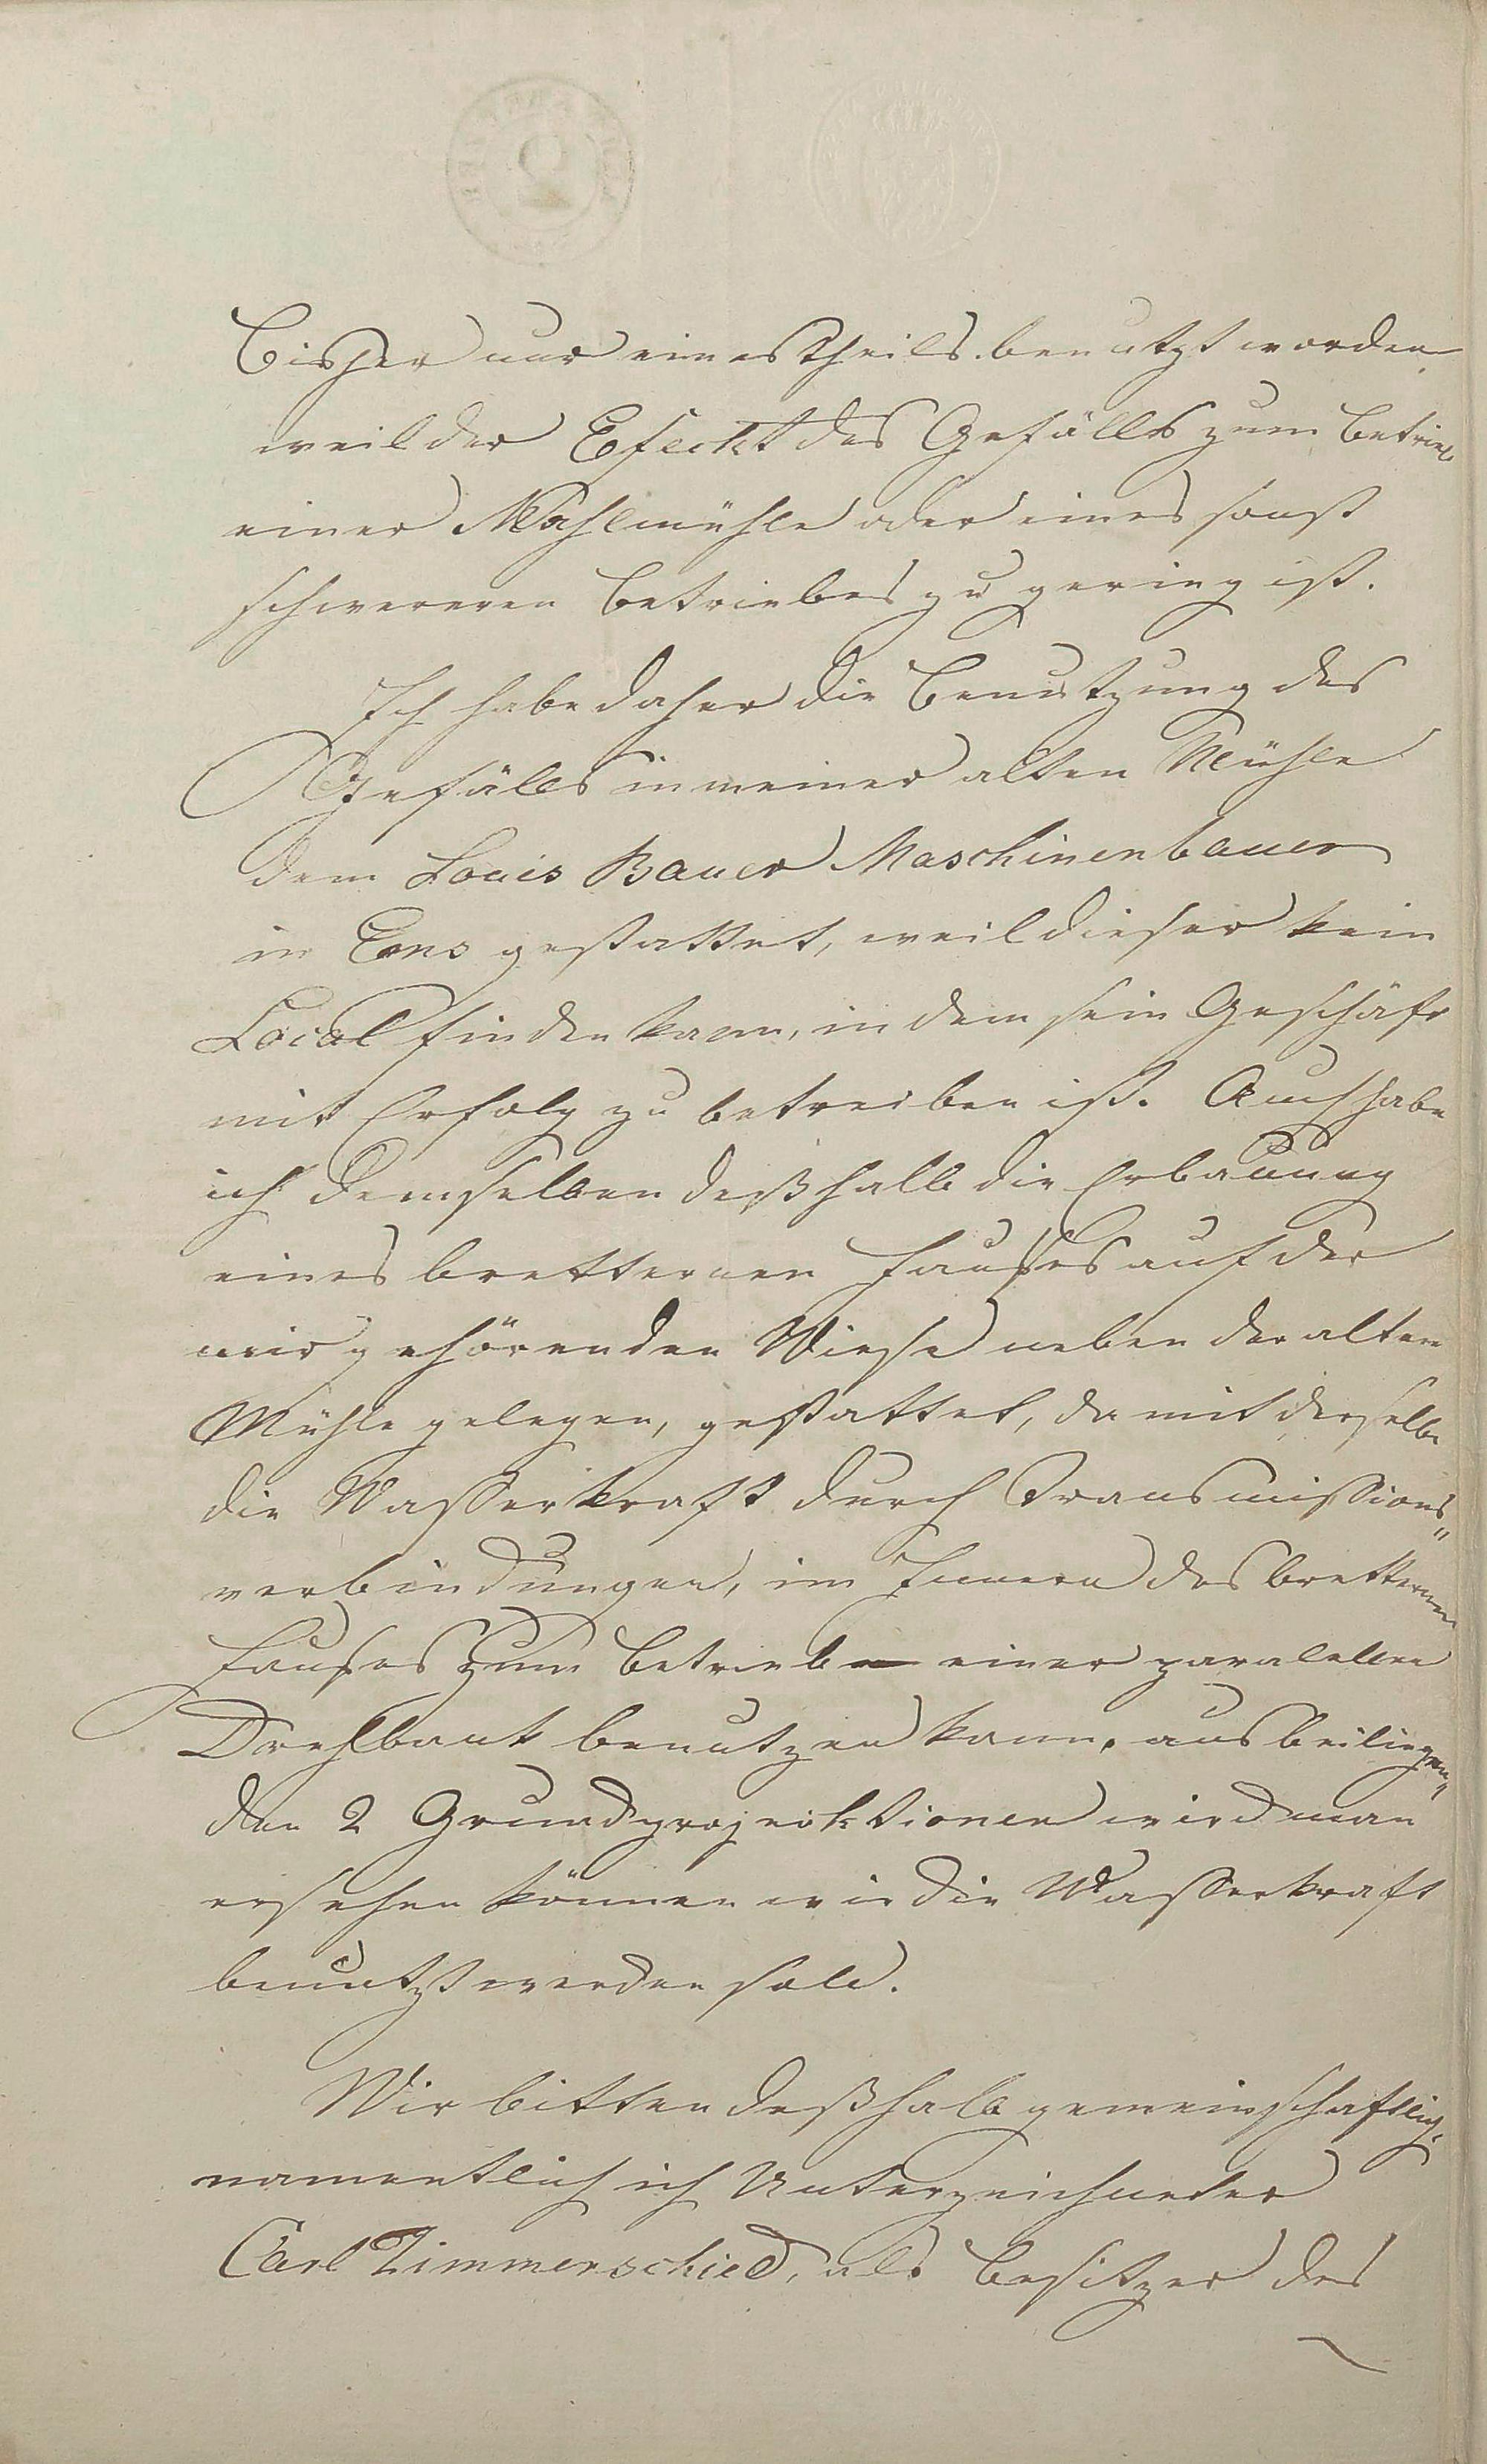 bisher nur einestheils benutzt worden
weil der Efeckt des Gefälls zum Betrieb
einer Mahlmühle oder eines sonst
schwereren Betriebes zu gering ist.
Ich habe daher die Benutzung des
Gefälls in meiner alten Mühle
dem Louis Bauer Maschinenbauer
in Ems gestattet, weil dieser kein
Local finden kann, in dem sein Geschäft
mit Erfolg zu betreiben ist. Auch habe
ich demselben deßhalb die Erbauung
eines bretternen Hauses auf der
mir gehörenden Wiese neben der alten
Mühle gelegen, gestattet, damit derselbe
die Wasserkraft durch Transmissions"
verbindungen, im Innern des bretternen
Hauses zum Betrieb einer paralellen
Drehbank benutzen kann. aus beiliegen"
den 2 Grundprojecktionen wird man
ersehen können wie die Wasserkraft
benutzt werden soll.
Wir bitten deßhalb gemeinschaftlich,
namentlich ich Unterzeichneter
Carl Zimmerschied, als Besitzer des